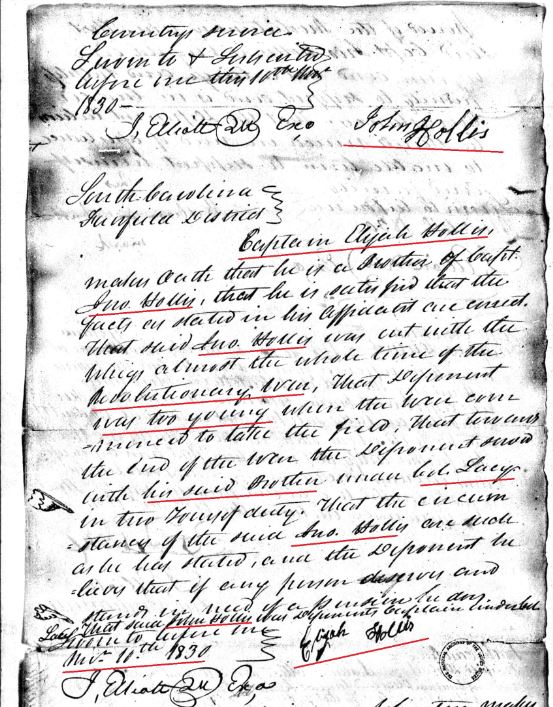 Countrys service
Sworn to & Subscribed
before me this 10th Novr
1830
J, Elliott QU Exo John Hollis
South Carolina
Fairfield District
Captain Elijah Hollis
makes Oath that he is a Brother of Capt.
Jno. Hollis, that he is satisfied that the
facts as stated in his affidavit are correct.
That said Jno. Hollis was out with the
Whigs almost the whole time of the
Revolutionary War, That Deponent
was too young when the War com
-menced to take the field, That towards
the End of the War the Deponent served
with his said Brother under Col. Lacy
in two Tours of duty. That the circum
=stances of the said Jno. Hollis are such
as he has stated, and the Deponent be
-lieves that if any person deserves and
stands in need of a Pension he does.
Lacy That said John Hollis was Deponents Captain under Col
Sworn to before me
Novr. 10th 1830 Elijah Hollis
J, Elliott QU Exo